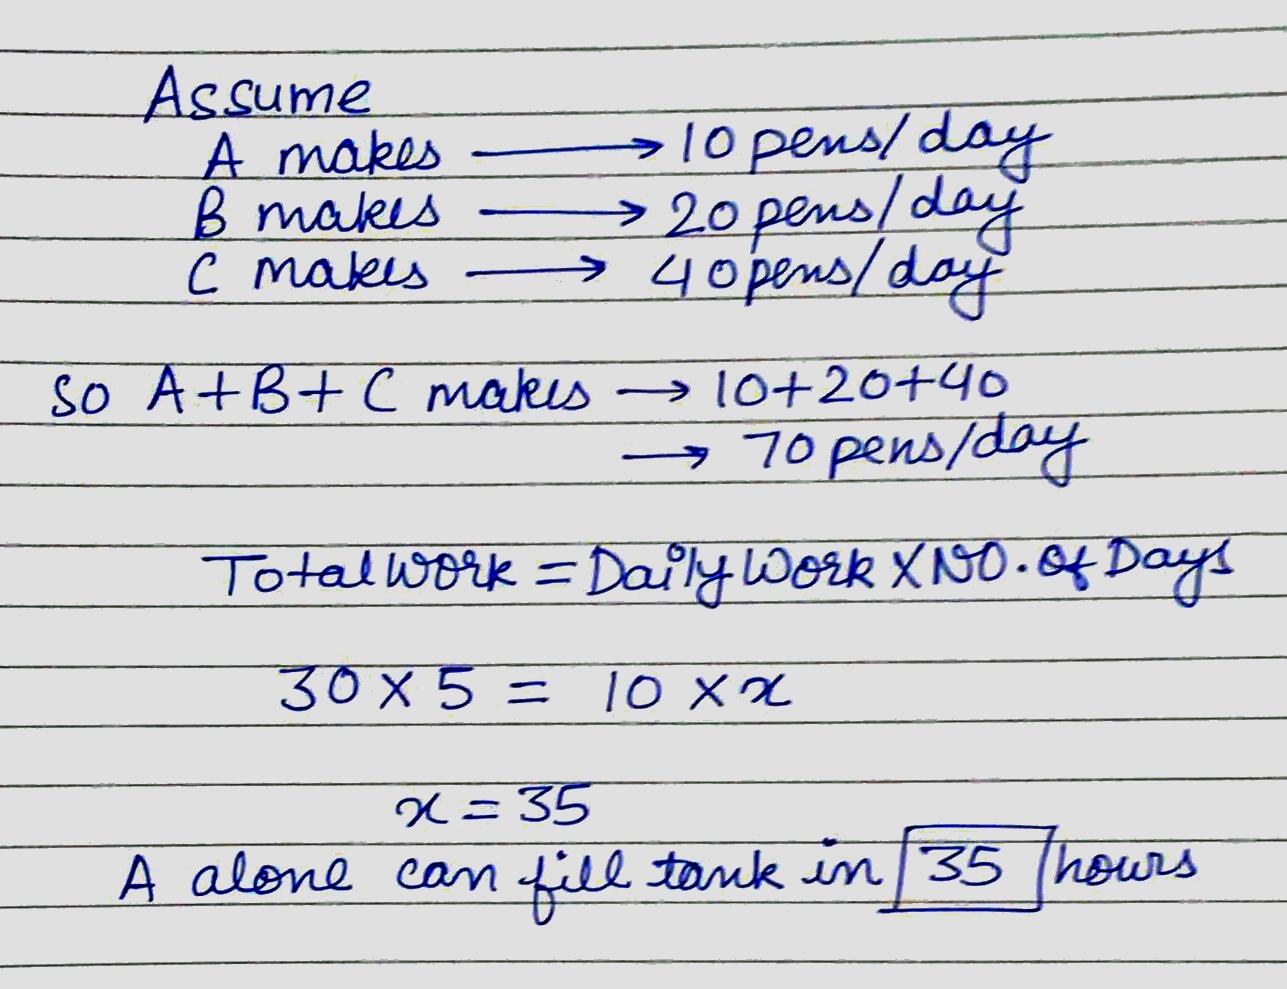 Assume
A makes → 10 pens/day
B makes → 20 pens/day
C makes → 40 pens/day
So A+B+C makes → 10+20+40
→ 70 pens/day
Total Work = Daily Work X NO. of Days
30 X 5 = 10 X x
x = 35
A alone can fill tank in 35 hours